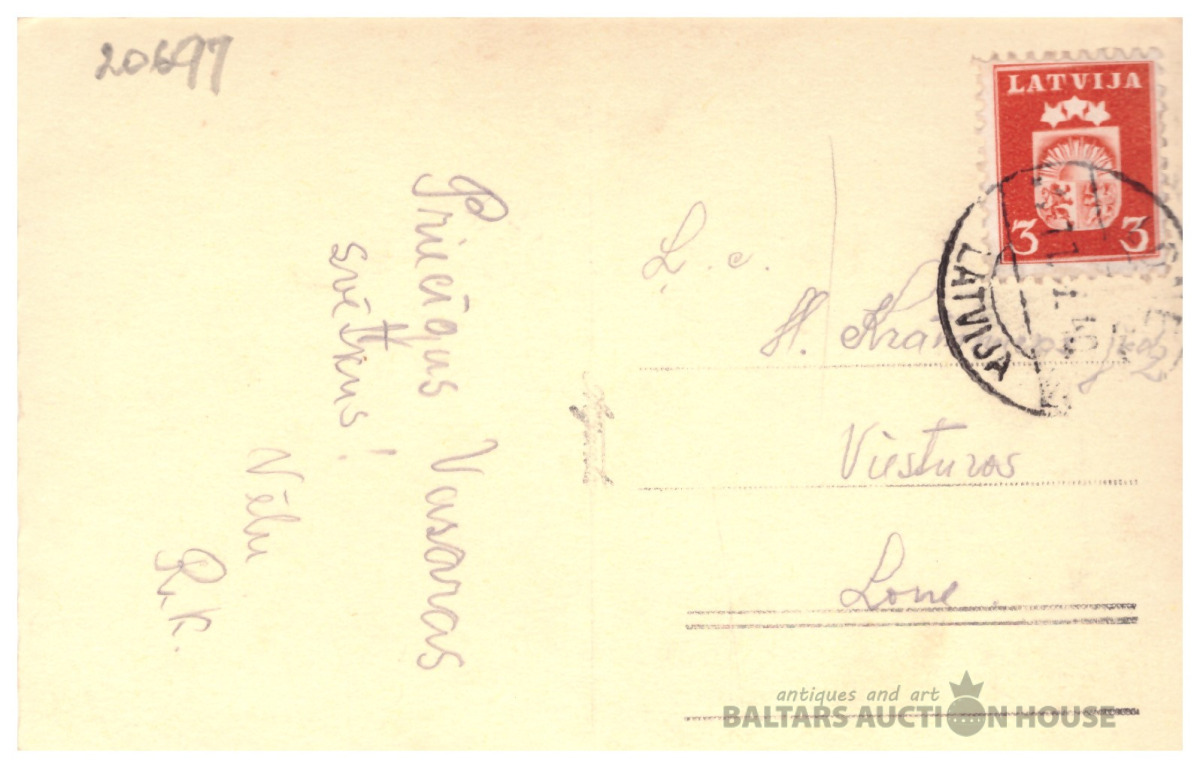 20697
Priecīgus Vasaras
svētkus!
Vēlu
R.K.
LATVIJA
3 3
LATVIJA
L. c.
H.
Viesturos
Lone
antiques and art
BALTARS AUCTION HOUSE